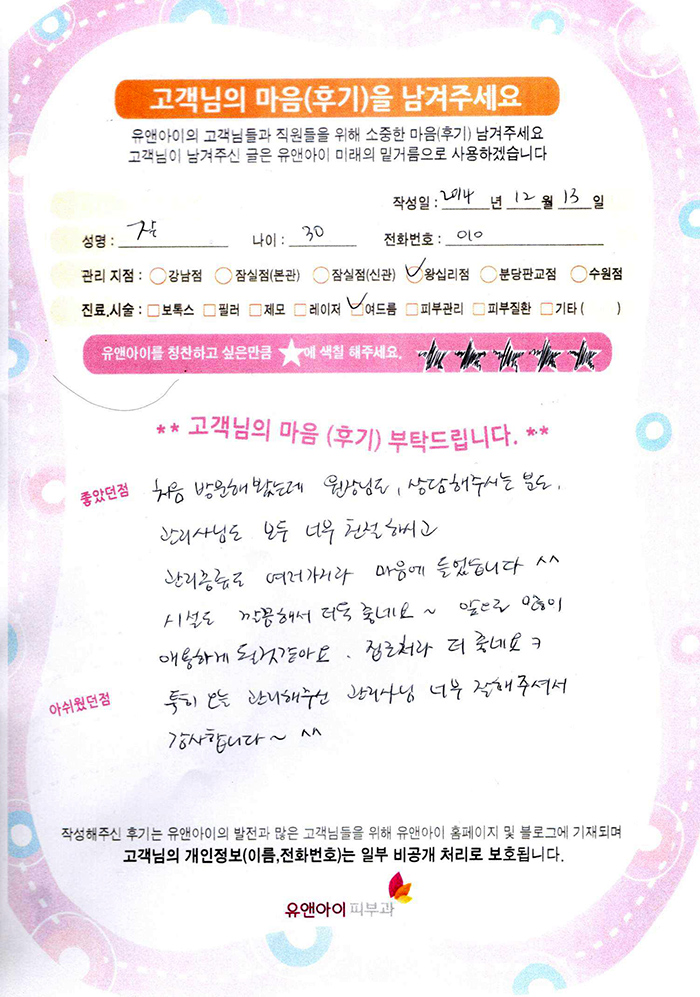 고객님의 마음(후기)을 남겨주세요
유앤아이의 고객님들과 직원들을 위해 소중한 마음(후기) 남겨주세요
고객님이 남겨주신 글은 유앤아이 미래의 밑거름으로 사용하겠습니다
작성일 : 2014 년 12 월 13 일
성명 : 나이 : 30 전화번호 : 010
관리 지점 : 강남점 잠실점(본관) 잠실점(신관) 왕십리점 분당판교점 수원점
진료.시술 : 보톡스 필러 제모 레이저 여드름 피부관리 피부질환 기타 ( )
유앤아이를 칭찬하고 싶은만큼 ★에 색칠 해주세요.
** 고객님의 마음 (후기) 부탁드립니다. **
좋았던점 처음 방문해봤는데 원장님도, 상담해주시는 분도,
관리사님도 모두 너무 친절하시고
관리종류도 여러가지라 마음에 들었습니다 ^^
시설도 깔끔해서 더욱 좋네요 ~ 앞으로 많이
애용하게 될것같아요. 집근처라 더 좋네요 ㅋ
아쉬웠던점 특히 오늘 관리해주신 관리사님 너무 잘해주셔서
감사합니다~ ^^
작성해주신 후기는 유앤아이의 발전과 많은 고객님들을 위해 유앤아이 홈페이지 및 블로그에 기재되며
고객님의 개인정보(이름,전화번호)는 일부 비공개 처리로 보호됩니다.
유앤아이 피부과